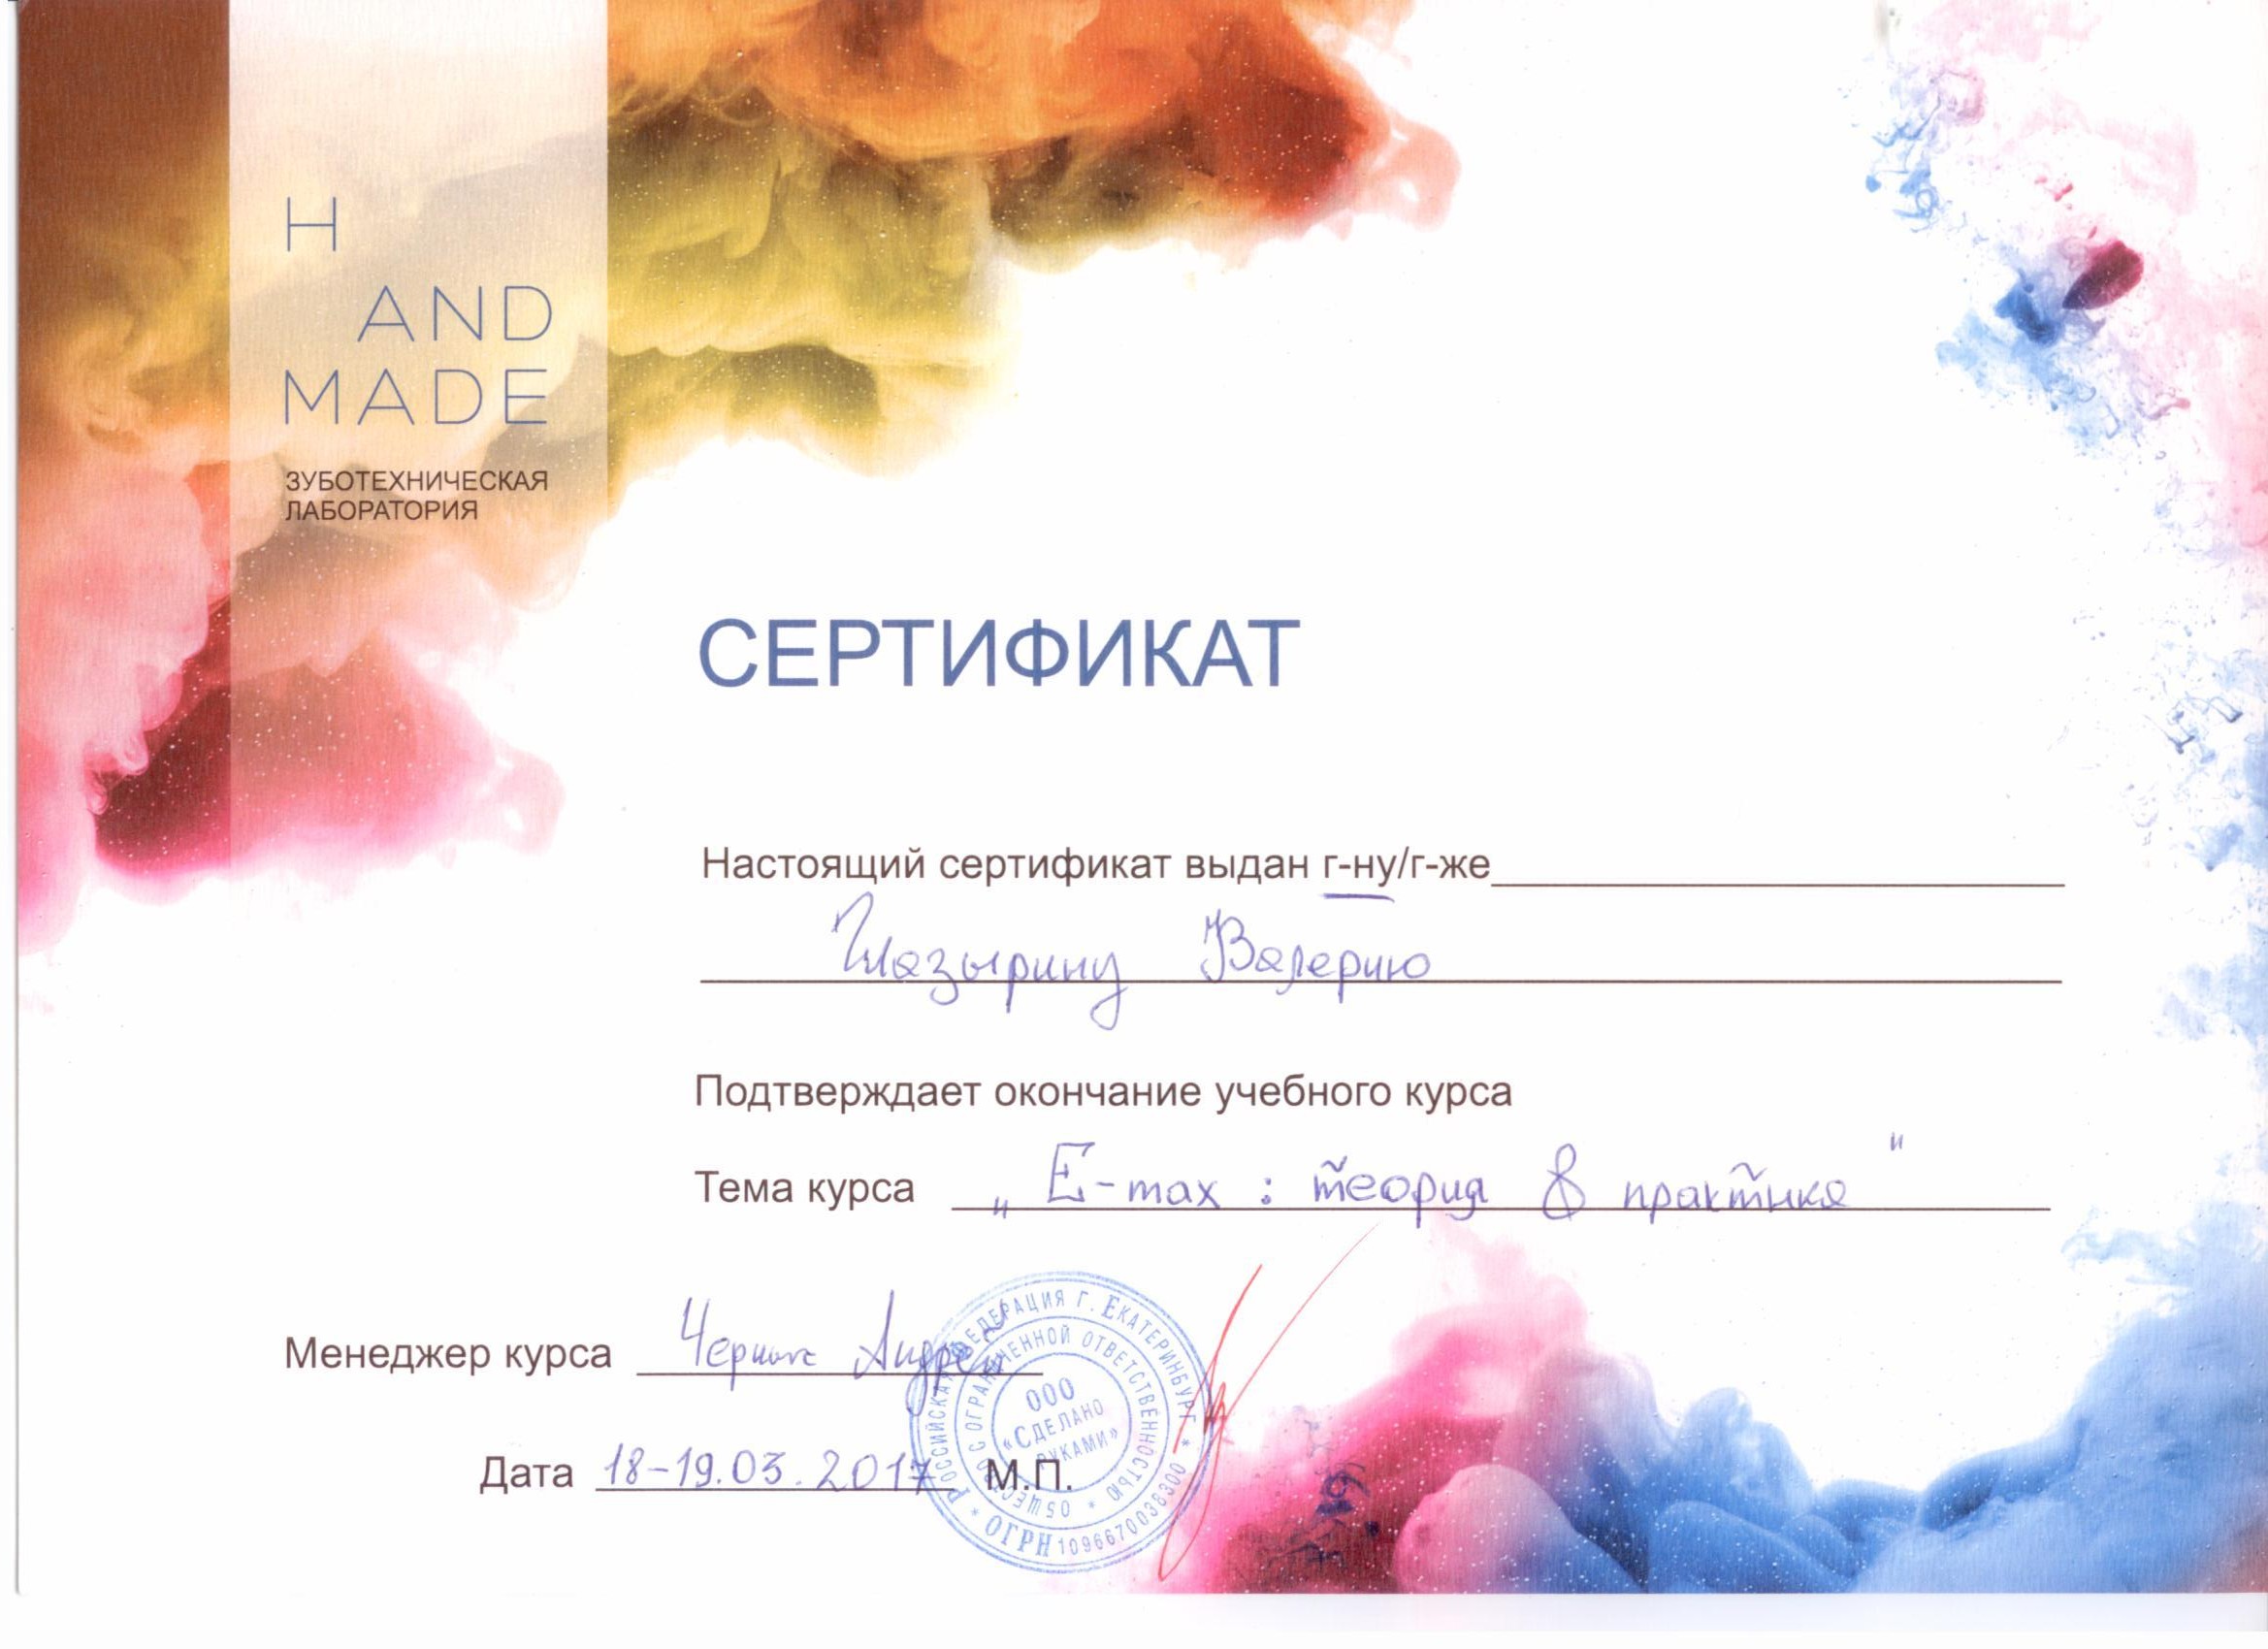 H
AND
MADE
ЗУБОТЕХНИЧЕСКАЯ
ЛАБОРАТОРИЯ
СЕРТИФИКАТ
Настоящий сертификат выдан г-ну/г-же
Валерию
Подтверждает окончание учебного курса
Тема курса „ E-max : теория в практике "
Менеджер курса Черных Андрей
Дата 18-19.03.2017 М.П.
РОССИЙСКАЯ ФЕДЕРАЦИЯ Г. ЕКАТЕРИНБУРГ * ОГРН 1096670038300 *
ОБЩЕСТВО С ОГРАНИЧЕННОЙ ОТВЕТСТВЕННОСТЬЮ *
ООО
«СДЕЛАНО
РУКАМИ»